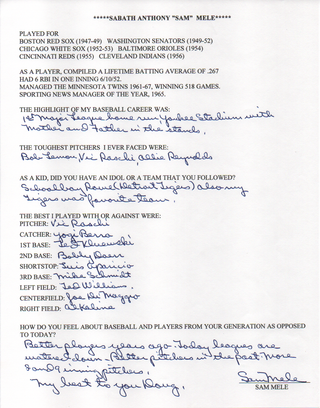 *****SABATH ANTHONY "SAM" MELE*****
PLAYED FOR
BOSTON RED SOX (1947-49) WASHINGTON SENATORS (1949-52)
CHICAGO WHITE SOX (1952-53) BALTIMORE ORIOLES (1954)
CINCINNATI REDS (1955) CLEVELAND INDIANS (1956)
AS A PLAYER, COMPILED A LIFETIME BATTING AVERAGE OF .267
HAD 6 RBI IN ONE INNING 6/10/52.
MANAGED THE MINNESOTA TWINS 1961-67, WINNING 518 GAMES.
SPORTING NEWS MANAGER OF THE YEAR, 1965.
THE HIGHLIGHT OF MY BASEBALL CAREER WAS:
1st Major League home run Yankee Stadium with
Mother and Father in the stands.
THE TOUGHEST PITCHERS I EVER FACED WERE:
Bob Lemon, Vic Raschi, Allie Reynolds
AS A KID, DID YOU HAVE AN IDOL OR A TEAM THAT YOU FOLLOWED?
Schoolboy Rowe (Detroit Tigers) also my
Tigers was favorite team.
THE BEST I PLAYED WITH OR AGAINST WERE:
PITCHER: Vic Raschi
CATCHER: Yogi Berra
1ST BASE: Ted Kluzewski
2ND BASE: Bobby Doerr
SHORTSTOP: Luis Aparicio
3RD BASE: Mike Schmidt
LEFT FIELD: Ted Williams
CENTERFIELD: Joe Di Maggio
RIGHT FIELD: Al Kaline
HOW DO YOU FEEL ABOUT BASEBALL AND PLAYERS FROM YOUR GENERATION AS OPPOSED
TO TODAY?
Better players years ago. Today leagues are
watered down. Better pitchers in the past. More
8 and 9 inning pitchers.
My best to you Doug,
Sam Mele
SAM MELE